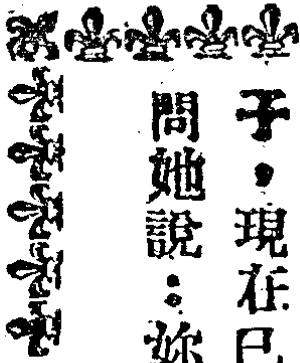 子，現在已
問她說：妳